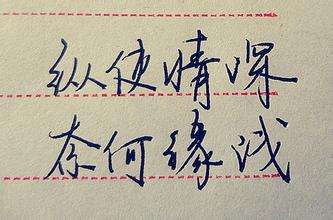 纵使情深
奈何缘浅